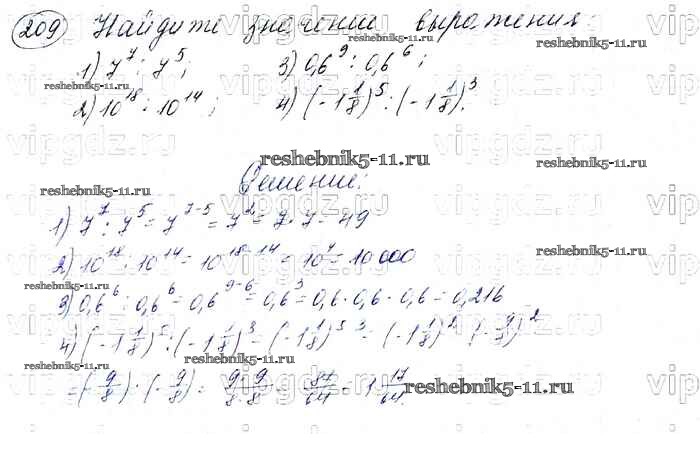 209 Найдите значение выражения
1) 7⁷ : 7⁵; 3) 0,6⁹ : 0,6⁶;
2) 10¹⁸ : 10¹⁴; 4) (-1 1/8)⁵ : (-1 1/8)³.
Решение:
1) 7⁷ : 7⁵ = 7⁷⁻⁵ = 7² = 7·7 = 49
2) 10¹⁸ : 10¹⁴ = 10¹⁸⁻¹⁴ = 10⁴ = 10000
3) 0,6⁶ : 0,6⁶ = 0,6⁹⁻⁶ = 0,6³ = 0,6·0,6·0,6 = 0,216
4) (-1 1/8)⁵ : (-1 1/8)³ = (-1 1/8)⁵⁻³ = (-1 1/8)² = (-9/8)²
= (-9/8)·(-9/8) = 9·9/8·8 = 81/64 = 1 17/64.
reshebnik5-11.ru
vipgdz.ru